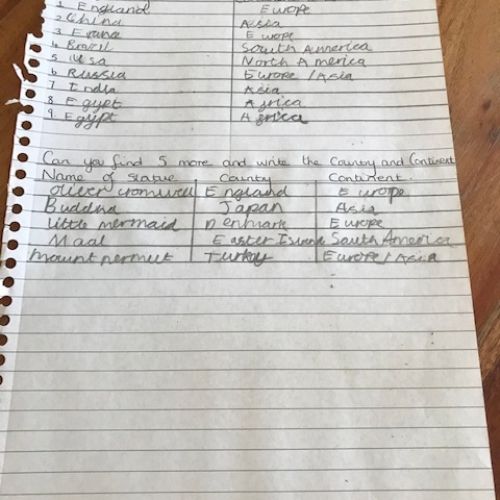 1 England Europe
2 China Asia
3 France Europe
4 Brazil South America
5 USA North America
6 Russia Europe / Asia
7 India Asia
8 Egypt Africa
9 Egypt Africa
Can you find 5 more and write the County and Continent
Name of Statue County Continent.
Oliver cromwell England Europe
Buddha Japan Asia
little mermaid Denmark Europe
Easter Island South America
mount Turkey Europe / Asia